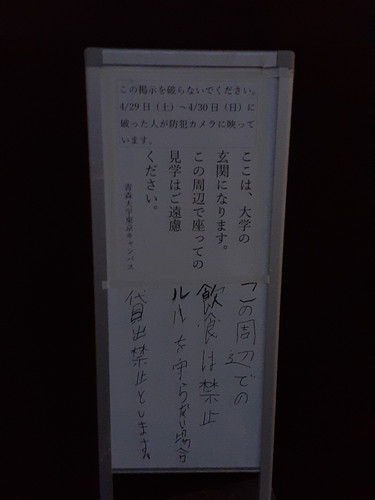 この掲示を破らないでください。
4/29日（土）～4/30日（日）に
破った人が防犯カメラに映って
います。
ここは、大学の
玄関になります。
この周辺で座っての
見学はご遠慮
ください。
青森大学東京キャンパス
この周辺での
飲食は禁止
ルルを守らない場合
貸出禁止とします。